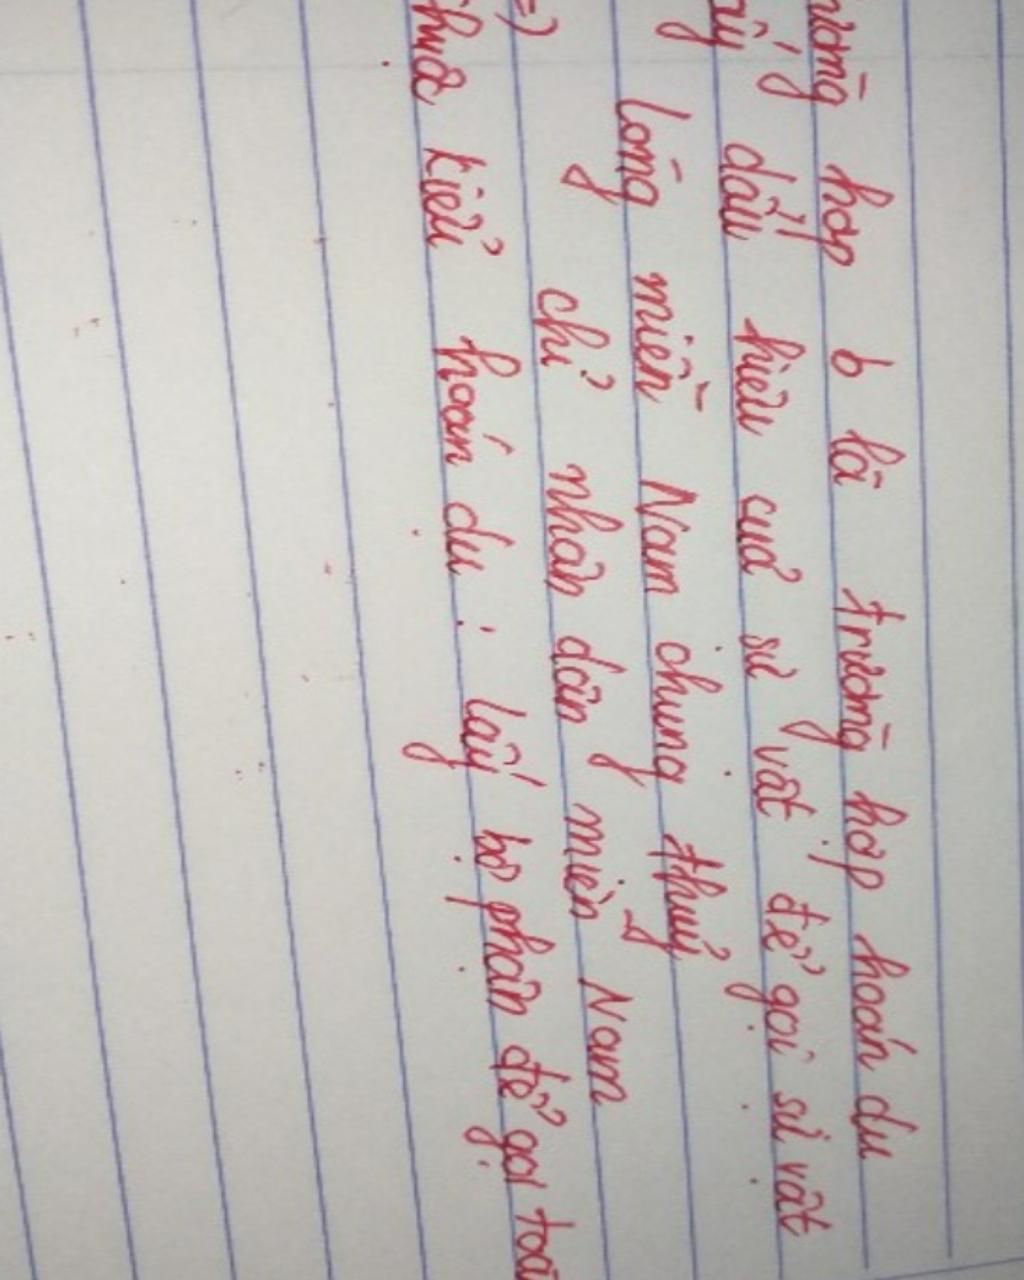 trường hợp b là trường hợp hoán dụ
lấy dấu hiệu của sự vật để gọi sự vật
lòng miền Nam chung thuỷ
=) chỉ nhân dân miền Nam
thuộc kiểu hoán dụ : lấy bộ phận để gọi toàn